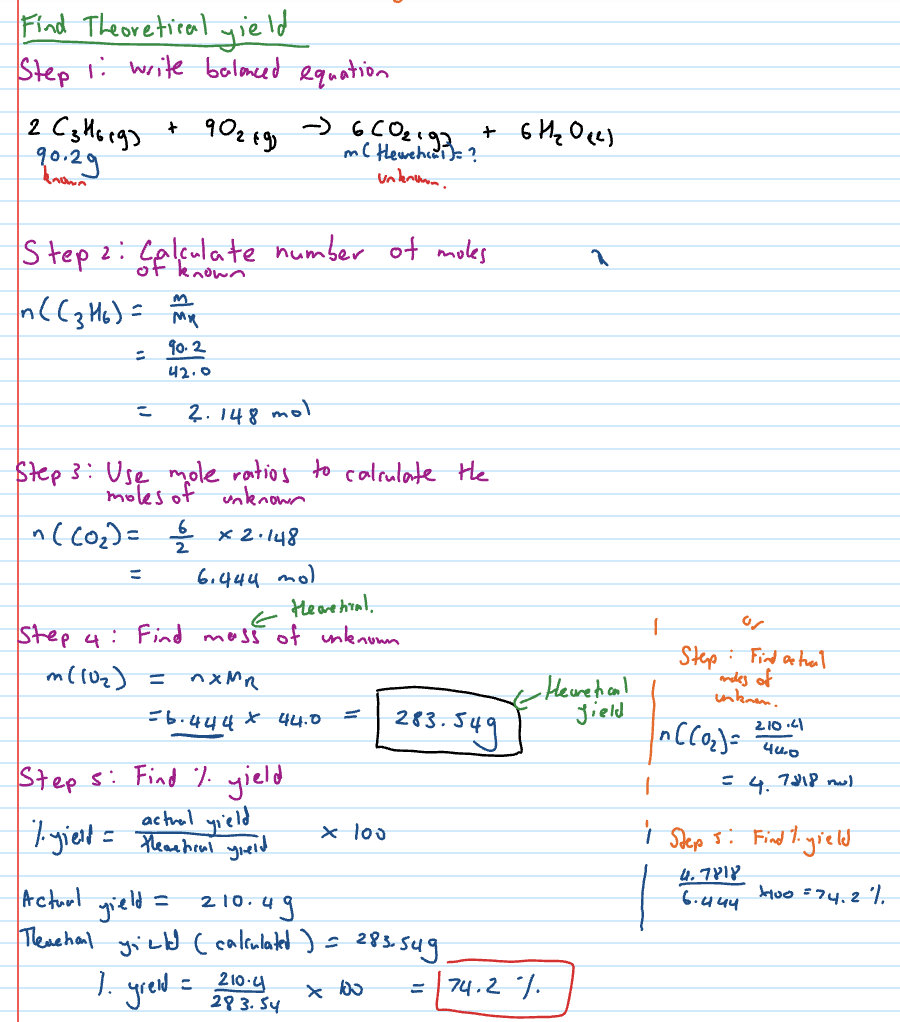 Find Theoretical yield
Step 1: write balanced equation
2 C₃H₆(g) + 9O₂(g) → 6CO₂(g) + 6H₂O(l)
90.2g m(theoretical)= ?
known unknown.
Step 2: Calculate number of moles
of known
n(C₃H₆) = m/MR
= 90.2/42.0
= 2.148 mol
Step 3: Use mole ratios to calculate the
moles of unknown
n(CO₂) = 6/2 × 2.148
= 6.444 mol
← theoretical.
Step 4: Find mass of unknown
m(CO₂) = n×MR
= 6.444 × 44.0 = 283.54g
← theoretical
yield
Step 5: Find % yield
% yield = actual yield/theoretical yield × 100
Actual yield = 210.4g
Theoretical yield (calculated) = 283.54g
% yield = 210.4/283.54 × 100 = 74.2 %.
or
Step : Find actual
moles of
unknown.
n(CO₂) = 210.4/44.0
= 4.7818 mol
Step 5: Find % yield
4.7818/6.444 ×100 = 74.2 %.